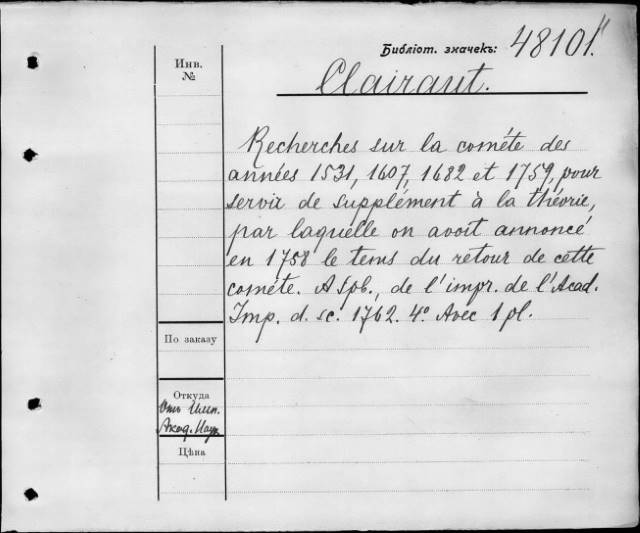 Библіот. значекъ: 48101."
Инв.
№
Clairaut.
Recherches sur la cométe des
années 1531, 1607, 1682 et 1759, pour
servir de supplément à la théorie,
par laquelle on avoit annoncé
en 1758 le tems du retour de cette
cométe. A Spb., de l'impr. de l'Acad.
Imp. d. sc. 1762. 4º Avec 1 pl.
По заказу
Откуда
Отъ Имп.
Акад. Наук
Цѣна